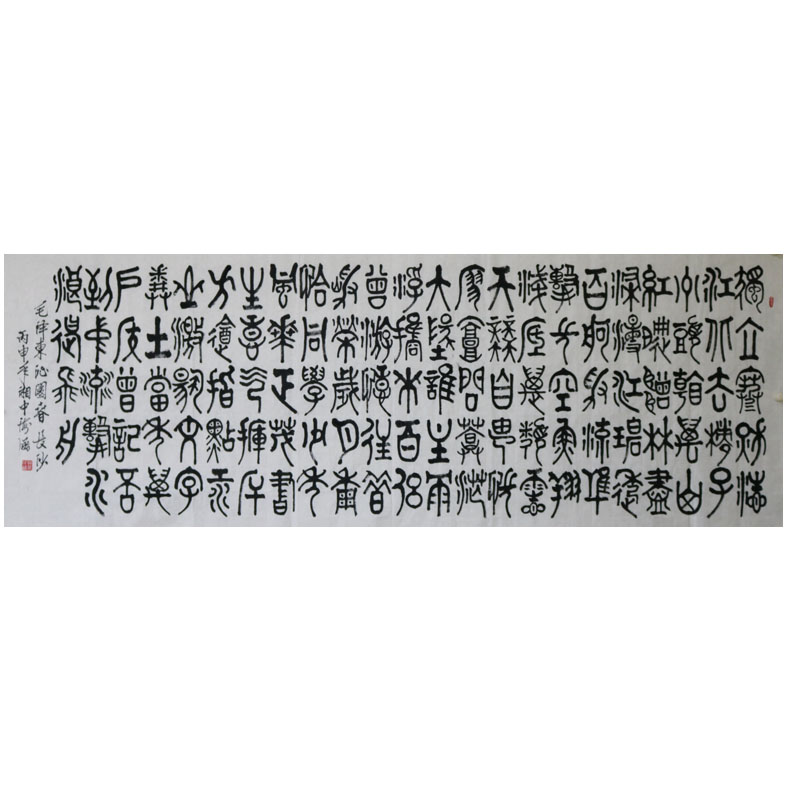 獨立寒秋湘
江北去橘子
洲頭看萬山
紅遍層林盡
染漫江碧透
百舸爭流鷹
擊長空魚翔
淺底萬類霜
天競自由悵
寥廓問蒼茫
大地誰主沉
浮攜來百侶
曾遊憶往昔
崢嶸歲月稠
恰同學少年
風華正茂書
生意氣揮斥
方遒指點江
山激揚文字
糞土當年萬
戶侯曾記否
到中流擊水
浪遏飛舟
毛澤東沁園春長沙
丙申年湘中